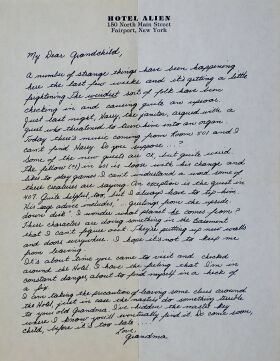 HOTEL ALIEN
150 North Main Street
Fairport, New York
My Dear Grandchild,
A number of strange things have been happening
here the last few weeks and it's getting a little
frightening. The weirdest sort of folk have been
checking in and causing quite an uproar.
Just last night, Harry, the janitor, argued with a
guest who threatened to turn him into an organ.
Today there's music coming from Room 301 and I
can't find Harry. Do you suppose...?
Some of the new guests are OK, but quite weird.
The fellow in is always with his change and
likes to play games. I can't understand a word some of
these creatures are saying. An exception is the guest in
407. Quite helpful, too, but I always have to tip him.
His sage advice includes "greetings from the upside
down desk". I wonder what planet he comes from?
These characters are doing something in the basement
that I can't figure out. They're putting up new walls
and doors everywhere. I hope it's not to keep me
from leaving.
It's about time you came to visit and checked
around the Hotel. I have the feeling that I'm in
constant danger, about to find myself in a heck of
a fix.
I am taking the precaution of leaving some clues around
the Hotel just in case the nasties do something terrible
to your old Grandma. I've hidden the master key
where I know you'll eventually find it. Do come soon,
child, before it's too late...
Love,
Grandma